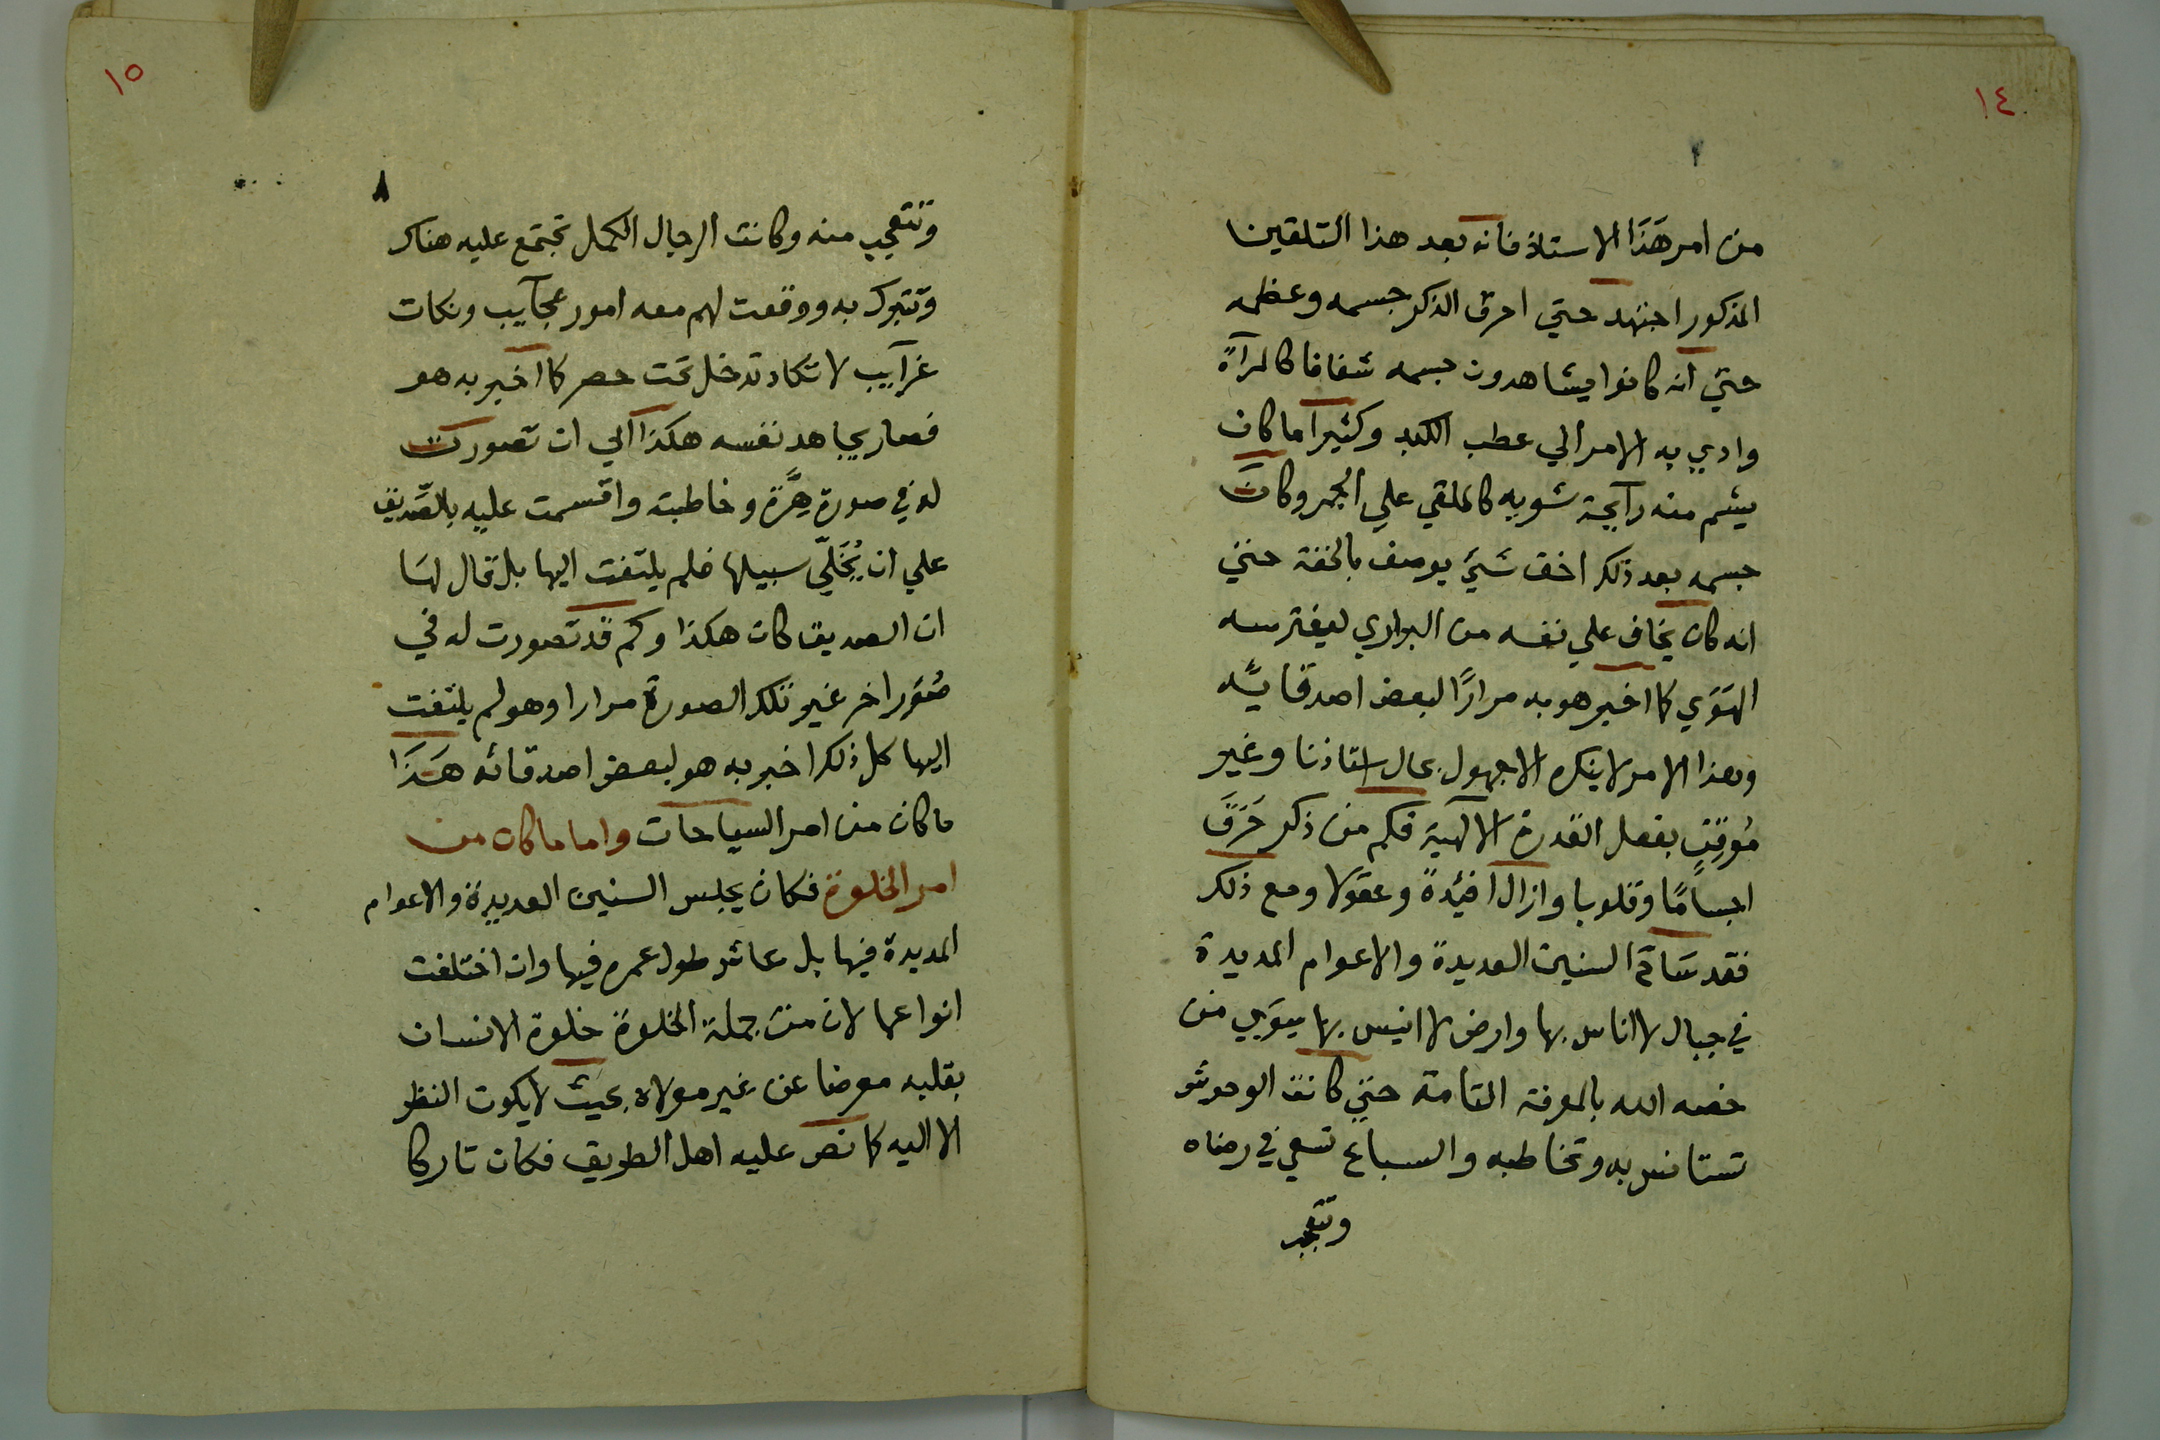 ١٤
من امر هَذَا الاستاذ فانه بعد هذا التلقين
المذكور اجتهد حتي احرق الذكر جسمه وعظمه
حتي انه كانوا يشاهدون جسمه شفافا كالمرآة
وادي به الامر الي عطب الكبد وكثيرا ما كان
يشم منه رآيحة شويه كالملقي علي الجمر وكانَ
جسمه بعد ذلك اخف شيَ يوصف بالخفة حتي
انه كان يخاف علي نفسه من البوادي ليفترسه
الهَوَي كما اخبر هو به مرارًا لبعض اصدقايه
وهذا الامر لا ينكره الا جهول بحال استاذنا وغير
مُوقِنٍ بفعل القدرة الآلهية فكم من ذكر حَرَقَ
اجسامًا وقلوبا وازال افئدةً وعقولا ومع ذلك
فقد سَاحَ السنين العديدة والاعوام المديدة
في جبال لا اناس بها وارض لا انيس بها سِوَي من
خصه الله بالمعرفة التامة حتي كانت الوحوش
تستانس به وتخاطبه والسباع تسعي في رضاه
وتتعجب
١٥
٨
وتتعجب منه وكانت الرجال الكمل تجتمع عليه هناك
وتتبرك به ووقعت لهم معه امور عجآيب ونكات
غرآيب لا تكاد تدخل تحت حصر كما اخبر به هو
فصار يجاهد نفسه هكذا الي ان تصورت
له في صورة هِرَّة وخاطبته واقسمت عليه بالصّديق
علي ان يُخَلّي سبيلها فلم يلتفت اليها بل قال لهَا
ان الصديق كان هكذا وكم قد تصورت له في
صُوَر اخر غير تلك الصورة مرارا وهو لم يلتفت
اليها كل ذلك اخبر به هو لبعض اصدقائه هَذَا
ما كان من امر السياحات واما ما كان من
امر الخلوة فكان يجلس السنين العديدة والاعوام
المديدة فيها بل عاش طول عمره فيها وان اختلفت
انواعها لان من جملة الخلوة خلوة الانسان
بقلبه معرضا عن غير مولاه بحيث لا يكون النظر
الا اليه كما نص عليه اهل الطريق فكان تاركا